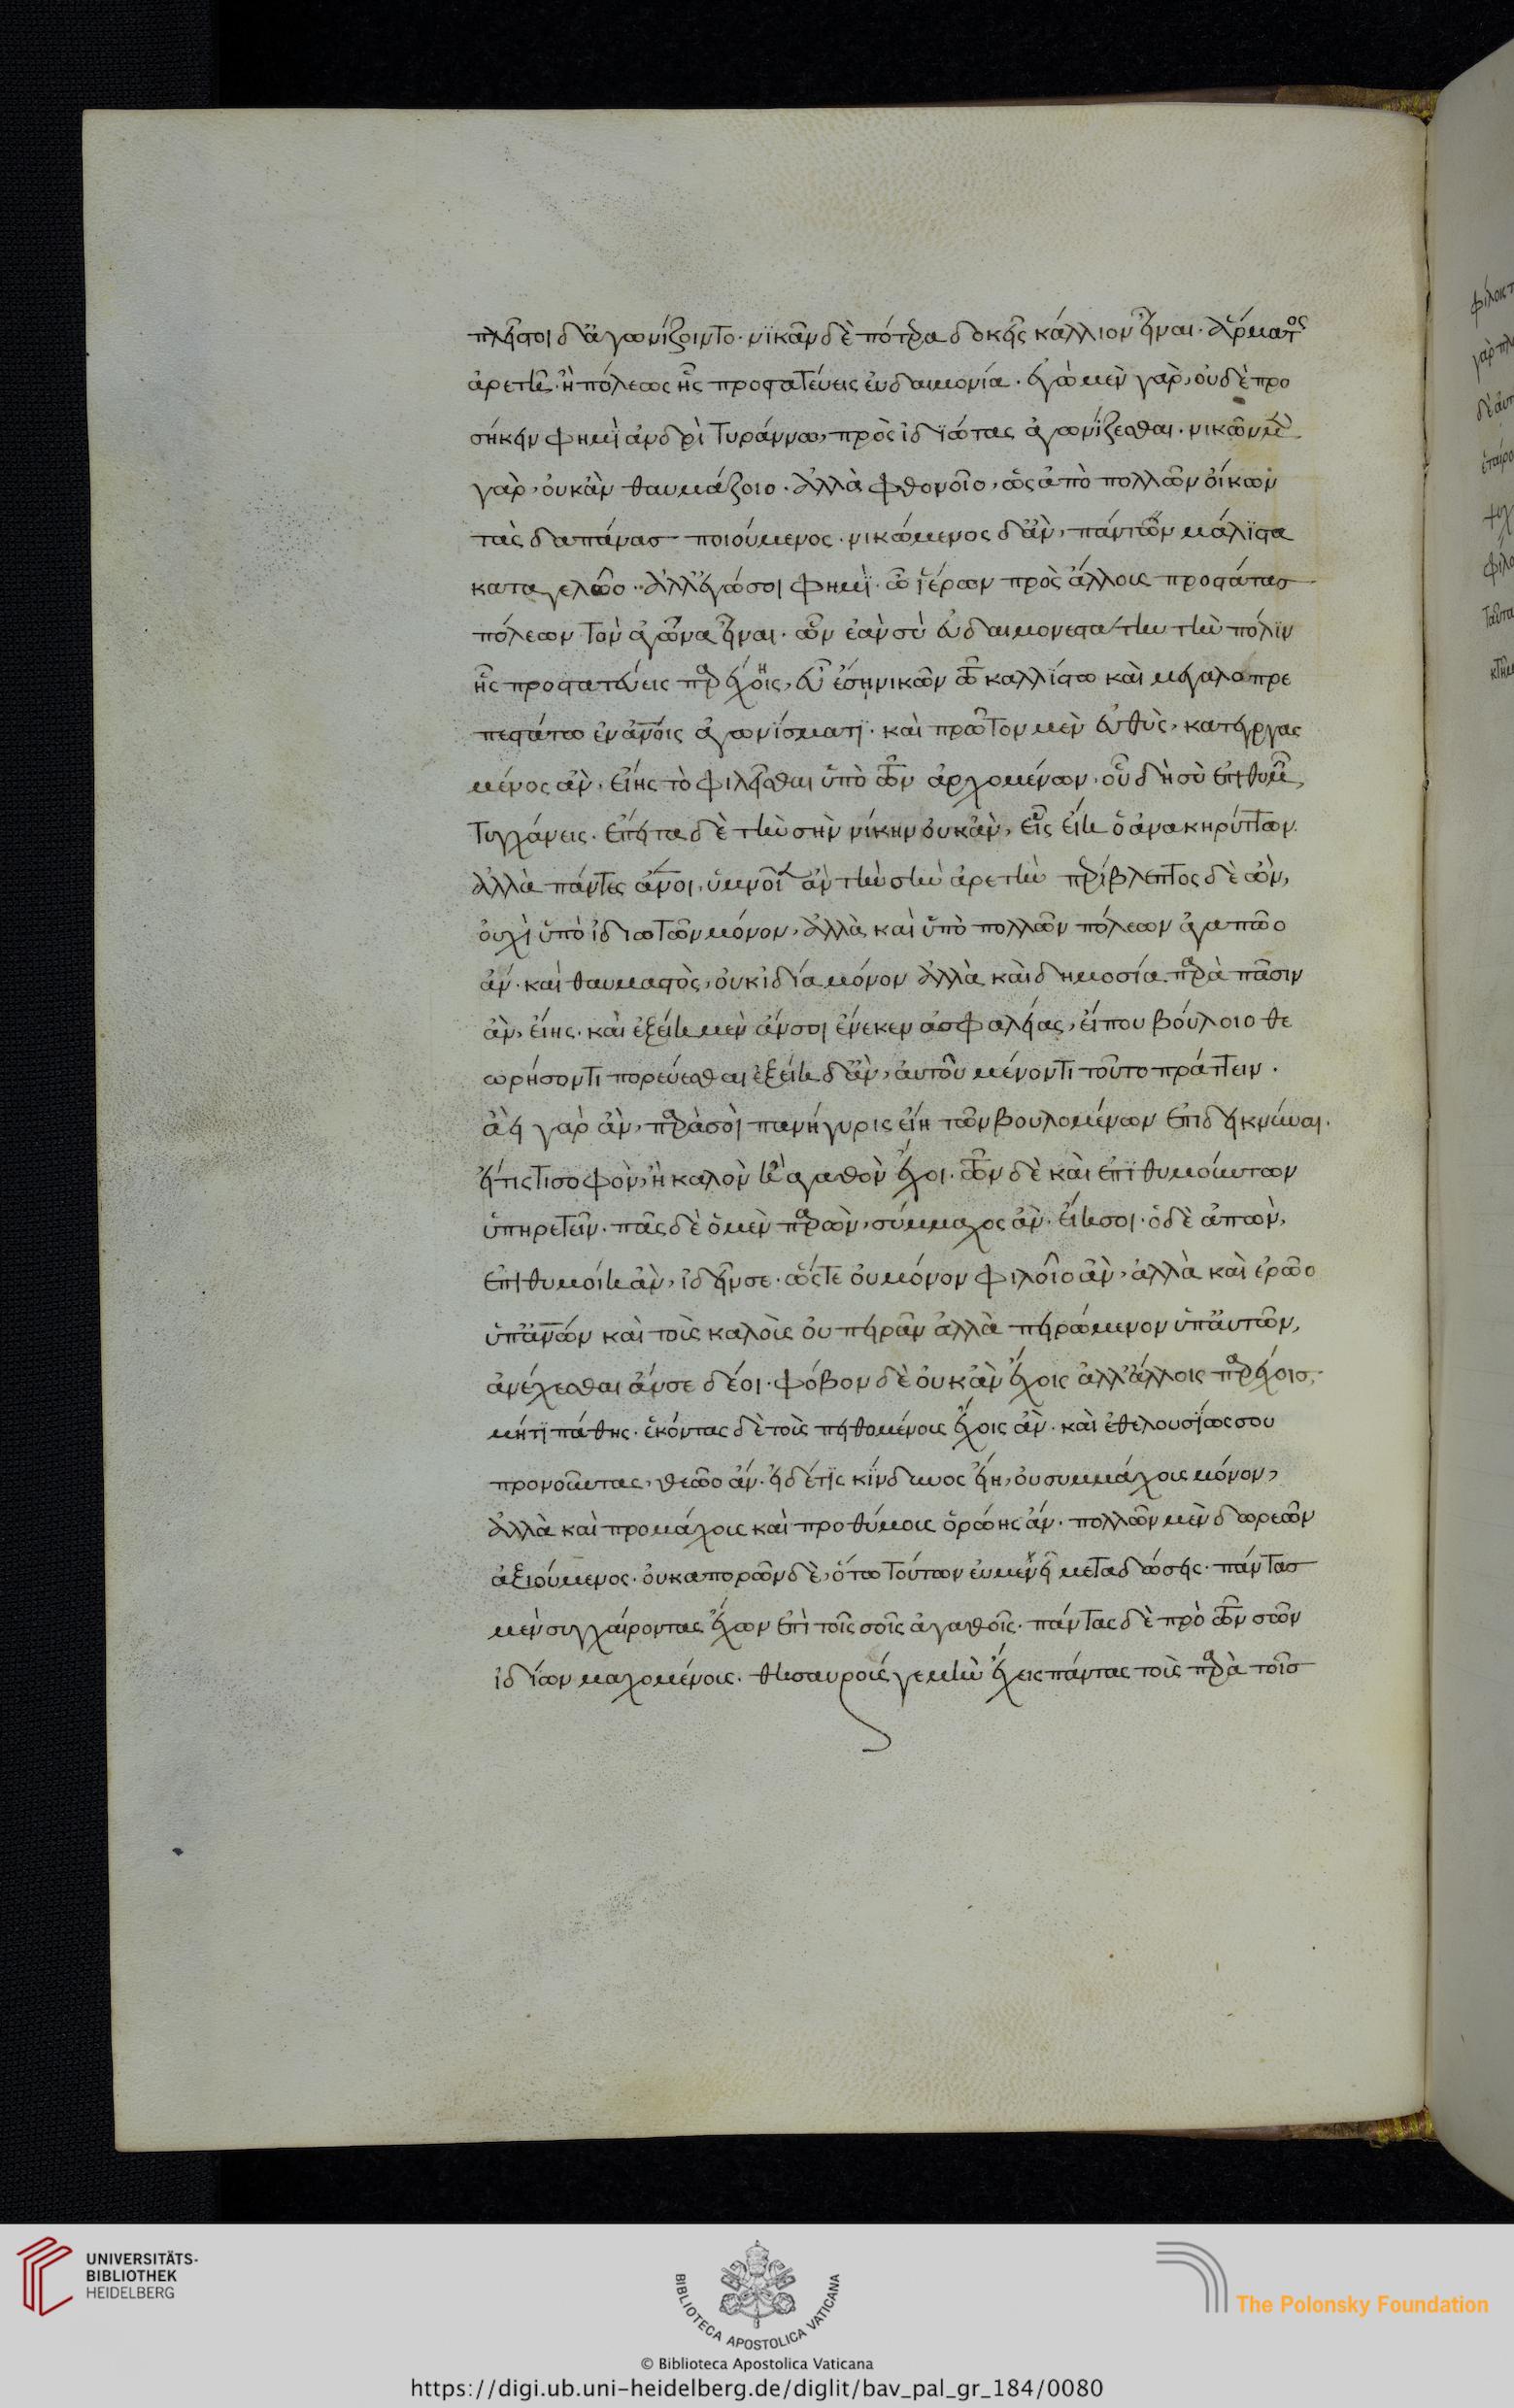 πλεῖστοι δ' ἀγωνίζοιντο· νικᾶν δὲ πότερα δοκεῖς κάλλιον εἶναι· ἅρματος
ἀρετῆ· ἢ πόλεως ἧς προστατεύεις εὐδαιμονία· ἐγὼ μὲν γὰρ, οὐδὲ προ
σήκειν φημὶ ἀνδρὶ τυράννω, πρὸς ἰδϊώτας ἀγωνίζεσθαι· νικῶν μὲν
γὰρ, οὐκ ἂν θαυμάζοιο· ἀλλὰ φθονοῖο, ὡς ἀπὸ πολλῶν οἴκων
τὰς δαπάνας ποιούμενος· νικώμενος δ' ἂν, πάντων μάλϊστα
καταγελῶο· ἀλλ' ἐγώ σοι φημῒ· ὦ ἱέρων πρὸς ἄλλους προστάτας
πόλεων τὸν ἀγῶνα εἶναι· ὧν ἐὰν σὺ εὐδαιμονεστάτην τὴν πόλϊν
ἧς προστατεύεις παρέχοις, εὖ ἔση νικῶν τῶ καλλίστω καὶ μεγαλοπρε
πεστάτω ἐν ἀνοις ἀγωνίσματϊ· καὶ πρῶτον μὲν εὐθὺς, κατειργας
μένος ἂν, εἴης τὸ φιλεῖσθαι ὑπὸ τῶν ἀρχομένων, οὗ δὴ σὺ ἐπιθυμῶν
τυγχάνεις. ἔπειτα δὲ τὴν σὴν νίκην οὐκ ἂν, εἷς εἴη ὁ ἀνακηρύττων.
ἀλλὰ πάντες ἄνοι, ὑμνοῖεν ἂν τὴν σὴν ἀρετὴν περίβλεπτος δὲ ὢν,
οὐχὶ ὑπὸ ἰδιωτῶν μόνον, ἀλλὰ καὶ ὑπὸ πολλῶν πόλεων ἀγαπῶο
ἄν· καὶ θαυμαστὸς, οὐκ ἰδία μόνον ἀλλὰ καὶ δημοσία παρὰ πᾶσιν
ἂν, εἴης· καὶ ἐξείη μὲν ἄν σοι ἕνεκεν ἀσφαλείας, εἴ που βούλοιο θε
ωρήσοντι πορεύεσθαι ἐξείη δ' ἂν, αὐτοῦ μένοντι τοῦτο πράττειν.
ἀεὶ γὰρ ἂν, παρὰ σοὶ πανήγυρις εἴη τῶν βουλομένων ἐπιδεικνύναι.
εἴ τίς τι σοφὸν, ἢ καλὸν ἢ ἀγαθὸν ἔχοι· τῶν δὲ καὶ ἐπϊθυμούντων
ὑπηρετεῖν. πᾶς δὲ ὁ μὲν παρὼν, σύμμαχος ἂν· εἴη σοι· ὁ δὲ ἀπὼν,
ἐπιθυμοίη ἂν, ἰδεῖν σε· ὥστε οὐ μόνον φιλοῖο ἂν, ἀλλὰ καὶ ἐρῶο
ὑπ' ἀνων καὶ τοὺς καλοὺς οὐ πειρᾶν ἀλλὰ πειρώμενον ὑπ' αὐτῶν,
ἀνέχεσθαι ἄν σε δέοι· φόβον δὲ οὐκ ἂν ἔχοις ἀλλ' ἄλλοις παρέχοις,
μή τϊ πάθης· ἑκόντας δὲ τοὺς πειθομένους ἔχοις ἂν· καὶ ἐθελουσίως σου
προνοοῦντας, θεῶο ἄν· εἰ δέ τϊς κίνδυνος εἴη, οὐ συμμάχους μόνον,
ἀλλὰ καὶ προμάχους καὶ προθύμους ὁρώης ἄν· πολλῶν μὲν δωρεῶν
ἀξιούμενος· οὐκ ἀπορῶν δὲ, ὅτω τούτων εὐμενεῖ μεταδώσεις· πάντας
μὲν συγχαίροντας ἔχων ἐπὶ τοῖς σοῖς ἀγαθοῖς. πάντας δὲ πρὸ τῶν σῶν
ἰδίων μαχομένους. θησαυρούς γε μὴν ἔχεις πάντας τοὺς παρὰ τοῖς
UNIVERSITÄTS-
BIBLIOTHEK
HEIDELBERG
BIBLIOTECA APOSTOLICA VATICANA
The Polonsky Foundation
© Biblioteca Apostolica Vaticana
https://digi.ub.uni-heidelberg.de/diglit/bav_pal_gr_184/0080